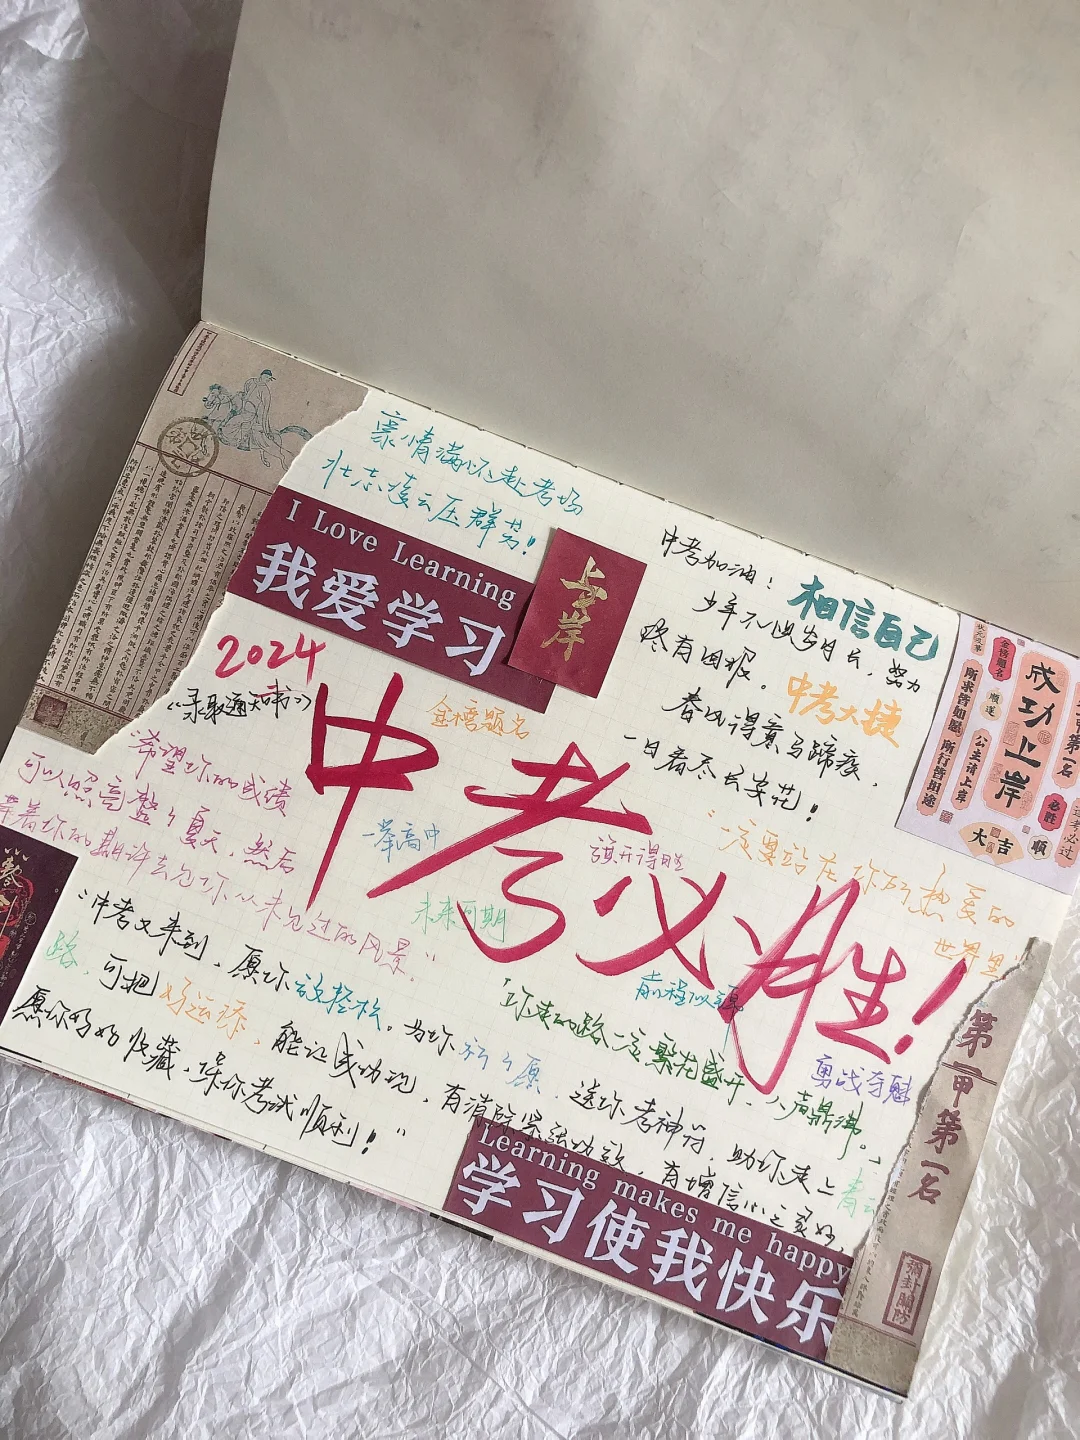 豪情满怀赴考场
壮志凌云压群芳！
I Love Learning
我爱学习
上岸
中考加油！
相信自己
少年不惧岁月长，努力
终有回报。
中考大捷
春风得意马蹄疾，
一日看尽长安花！
成功上岸
金榜题名
顺遂
所求皆如愿
所行皆坦途
公主请上岸
必胜
逢考必过
大吉
顺
2024
《录取通知书》
金榜题名
中考必胜！
"希望你的成绩
可以照亮整个夏天，然后
带着你的期许去包你从未见过的风景。"
一举高中
旗开得胜
未来可期
前程似锦
勇战夺魁
"一定要站在你所热爱的
世界里"
「你走的路一定繁花盛开，人声鼎沸。」
"中考又来到，愿你放轻松。为你祈个愿，送你考神符，助你走上青云
路，可把好运添，能让成功现，有消除紧张功效，有增信心之美妙，
愿你好好收藏，保你考试顺利！"
Learning makes me happy
学习使我快乐
第一甲第一名
弥封关防